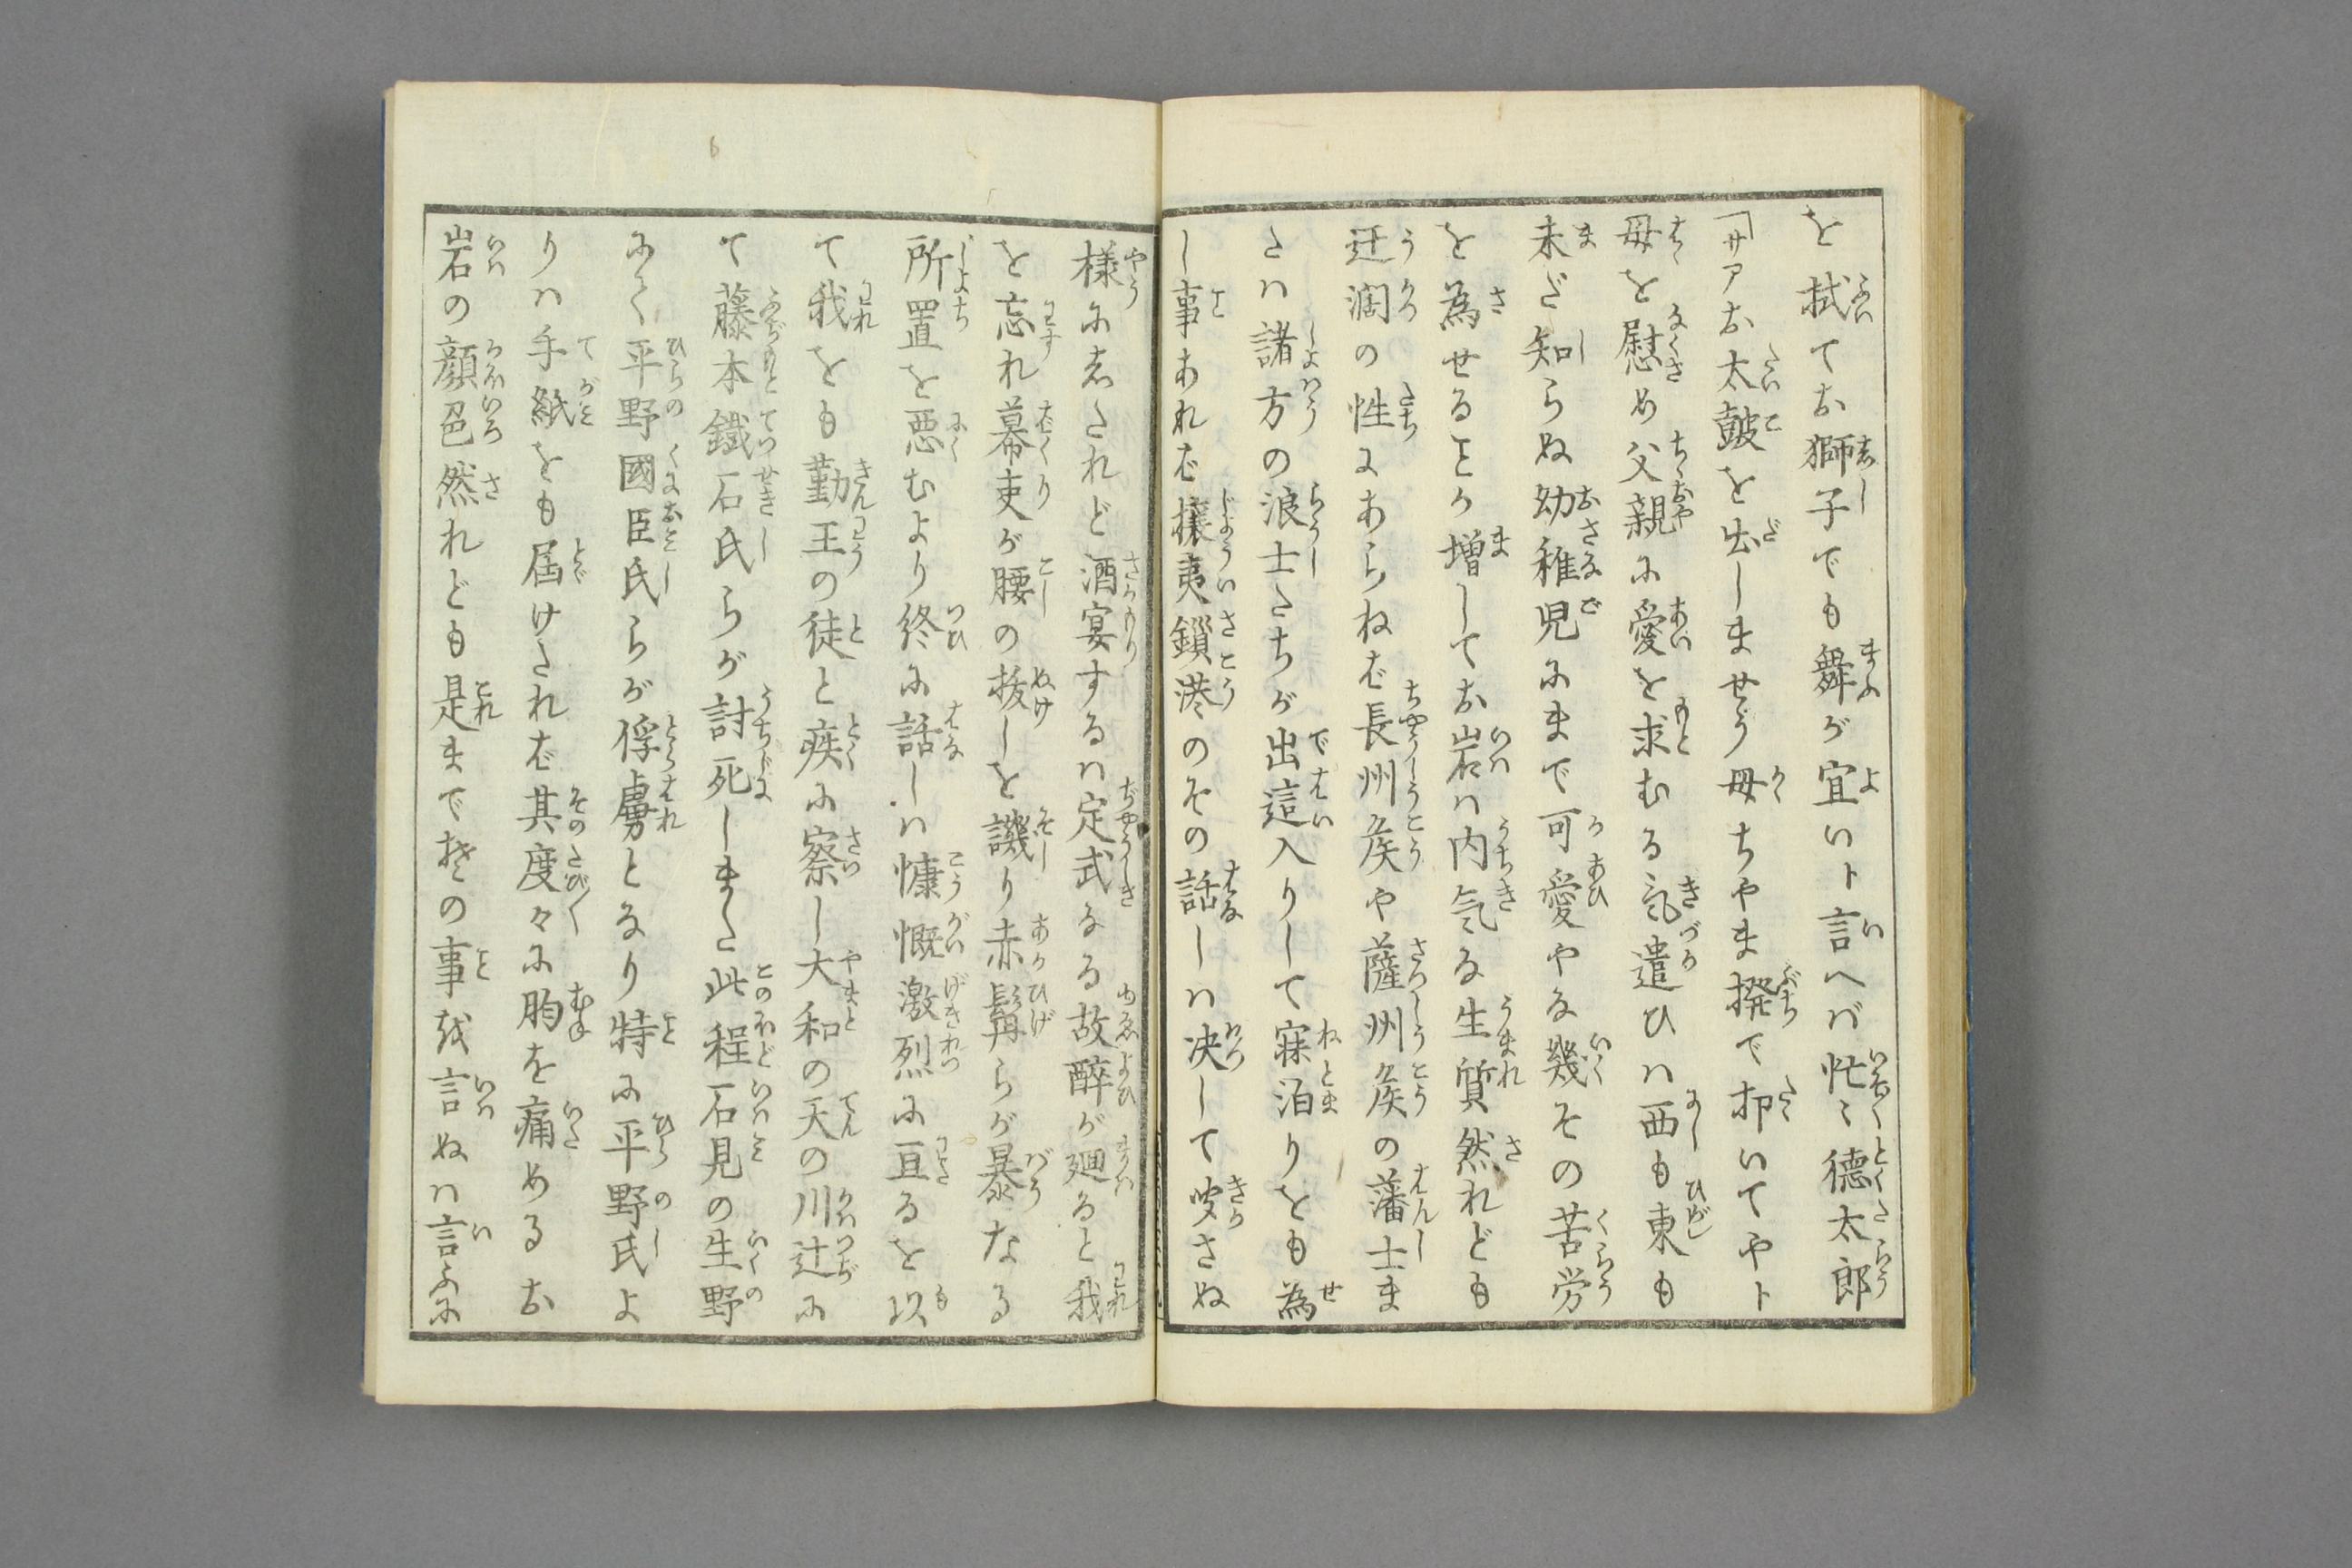 を拭てお獅子でも舞が宜いト言へバ忙〻徳太郎
「サアお太皷を出しませう母ちやま撥で叩いてやト
母を慰め父親に愛を求むる気遣ひハ西も東も
未だ知らぬ幼稚児にまで可愛やな幾その苦労
を為せることか増してお岩ハ内気な生質然れども
迂濶の性にあらねば長州矦や薩州矦の藩士ま
たハ諸方の浪士たちが出這入りして寐泊りをも為
し事あれば攘夷鎖港のその話しハ决して叓さぬ
様にしたれど酒宴するハ定式なる故醉が廻ると我
を忘れ幕吏が腰の抜しを譏り赤髯らが暴なる
所置を悪むより終に話しハ慷慨激烈に亘るを以
て我をも勤王の徒と疾に察し大和の天の川辻に
て藤本鐵石氏らが討死しまた此程石見の生野
にて平野國臣氏らが俘虜となり特に平野氏よ
りハ手紙をも届けたれば其度々に胸を痛めるお
岩の顔色然れども是までその事を言ぬハ言ふに